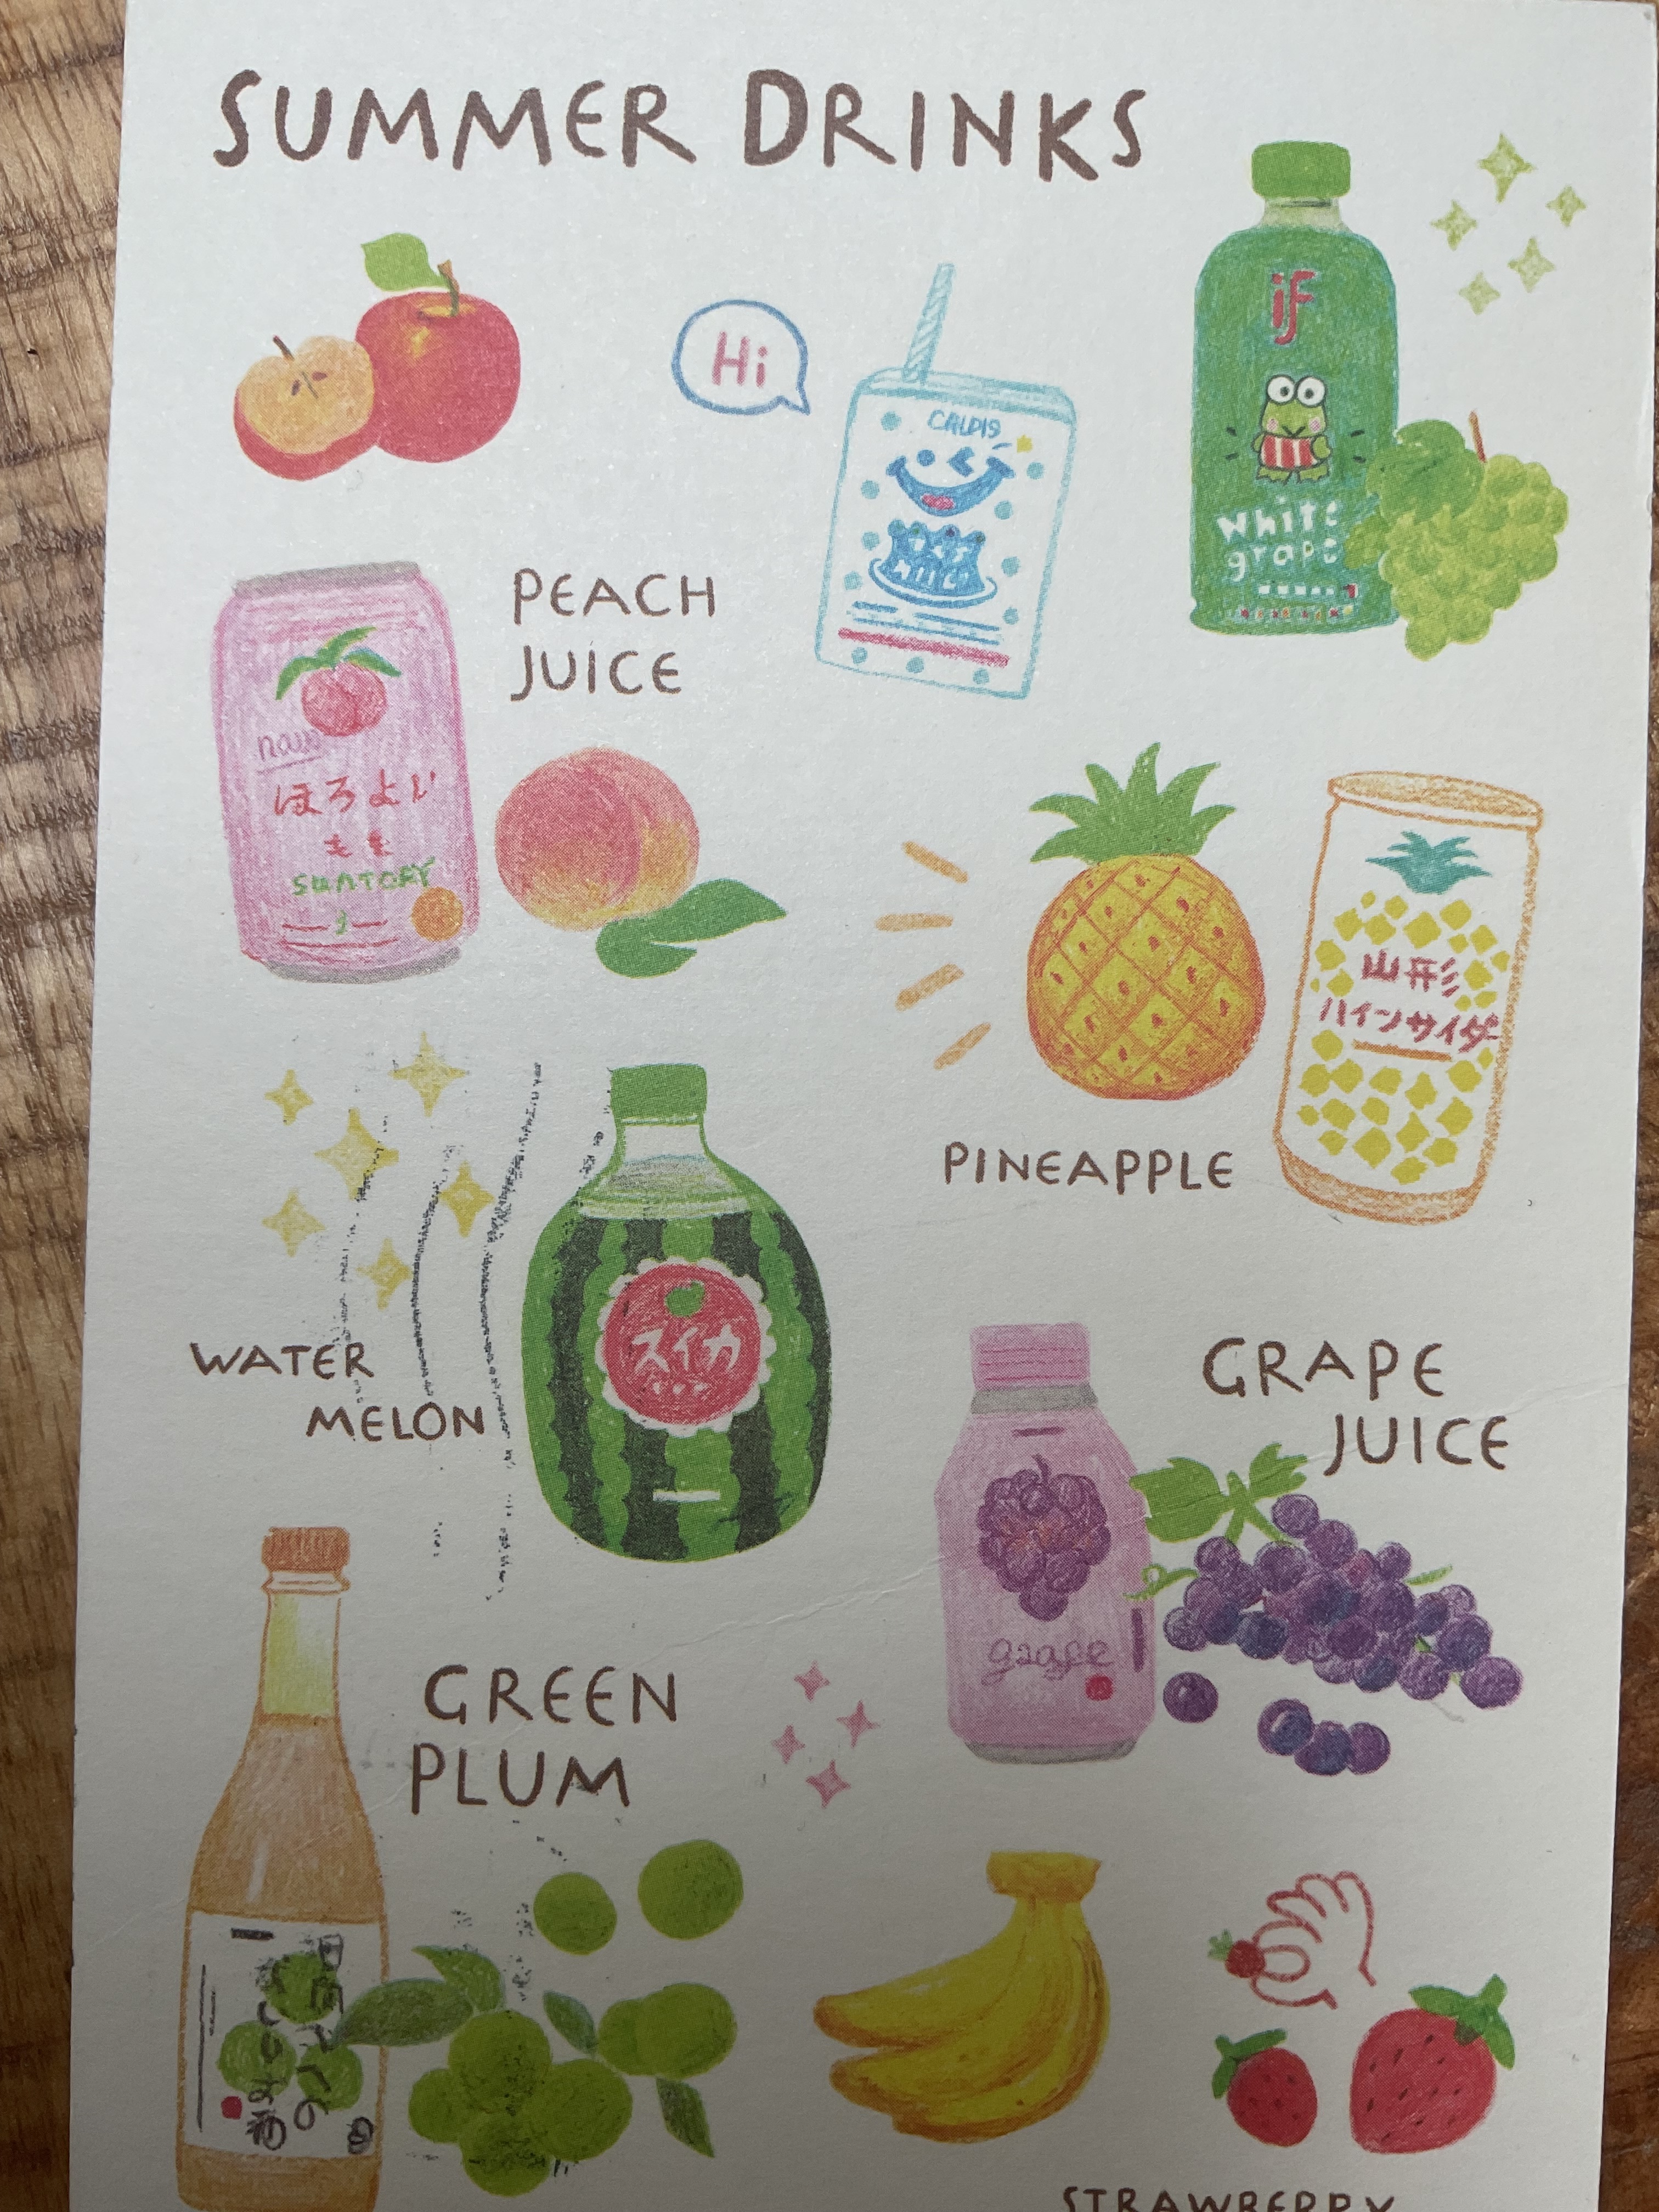 SUMMER DRINKS
Hi
CALPIS
if
White
grape
PEACH
JUICE
ほろよい
もも
SUNTORY
山形
パインサイダー
PINEAPPLE
WATER
MELON
スイカ
GRAPE
JUICE
grape
GREEN
PLUM
STRAWBERRY